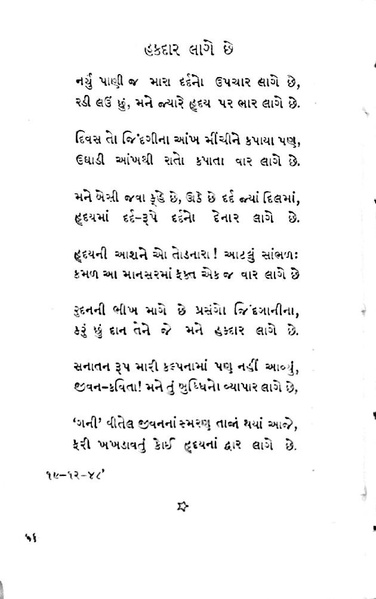 હકદાર લાગે છે
નર્યું પાણી જ મારા દર્દનો ઉપચાર લાગે છે,
રડી લઉં છું, મને જ્યારે હૃદય પર ભાર લાગે છે.
દિવસ તો જિંદગીના આંખ મીંચીને કપાયા પણ,
ઉઘાડી આંખથી રાતો કપાતા વાર લાગે છે.
મને બેસી જવા કૂહે છે, ઊઠે છે દર્દ જ્યાં દિલમાં,
હૃદયમાં દર્દ-રૂપે દર્દનો દેનાર લાગે છે.
હૃદયની આશને ઓ તોડનારા! આટલું સાંભળઃ
કમળ આ માનસરમાં ફક્ત એક જ વાર લાગે છે
રૂદનની ભીખ માગે છે પ્રસંગો જિંદગાનીના,
કરું છું દાન તેને જે મને હકદાર લાગે છે.
સનાતન રૂપ મારી કલ્પનામાં પણ નહીં આવ્યું,
જીવન-કવિતા! મને તું બુધ્ધિનો વ્યાપાર લાગે છે,
‘ગની’ વીતેલ જીવનનાં સ્મરણ તાજાં થયાં આજે,
ફરી ખખડાવતું કોઈ હૃદયનાં દ્વાર લાગે છે.
૧૯-૧૨-૪૮'
૫૬